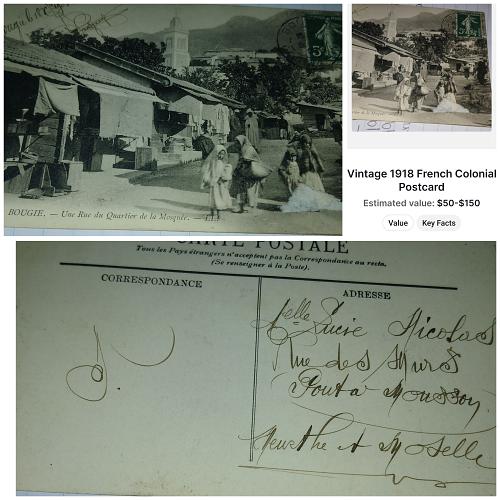 BOUGIE. — Une Rue du Quartier de la Mosquée. — LL
Vintage 1918 French Colonial
Postcard
Estimated value: $50-$150
Value
Key Facts
CARTE POSTALE
Tous les Pays étrangers n'acceptent pas la Correspondance au recto.
(Se renseigner à la Poste).
CORRESPONDANCE
ADRESSE
Melle Lucie Nicolas
Rue des Murs
Pont à Mousson
Meurthe et Moselle